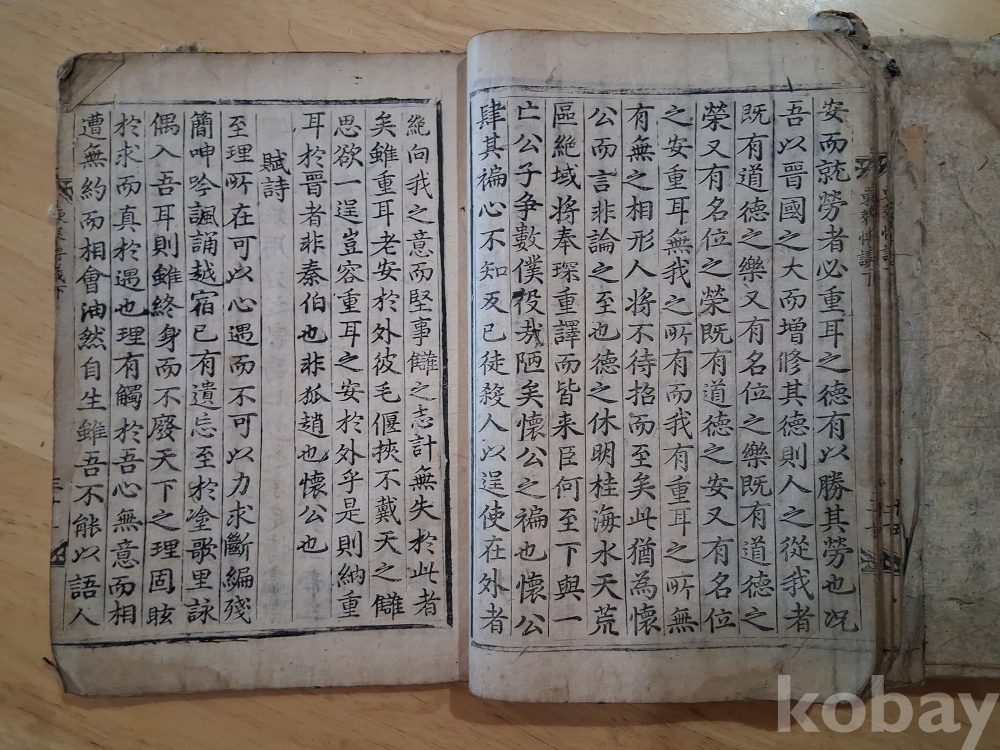 安而就勞者必重耳之德有以勝其勞也况
吾以晉國之大而增修其德則人之從我者
既有道德之樂又有名位之樂既有道德之
榮又有名位之榮既有道德之安又有名位
之安重耳無我之所有而我有重耳之所無
有無之相形人將不待招而至矣此猶為懷
公而言非論之至也德之休明桂海水天荒
區絶域將奉琛重譯而皆来臣何至下與一
亡公子争數僕役㢤陋矣懷公之褊也懷公
肆其褊心不知反已徒殺人以逞使在外者
絶向我之意而堅事讎之志計無失於此者
矣雖重耳老安於外彼毛偃挾不戴天之讎
思欲一逞豈容重耳之安於外乎是則納重
耳於晉者非秦伯也非狐趙也懷公也
賦詩
至理所在可以心遇而不可以力求斷編殘
簡呻吟諷誦越宿已有遺忘至於塗歌里詠
偶入吾耳則雖終身而不廢天下之理固眩
於求而真於遇也理有觸於吾心無意而相
遭無約而相會油然自生雖吾不能以語人
kobay